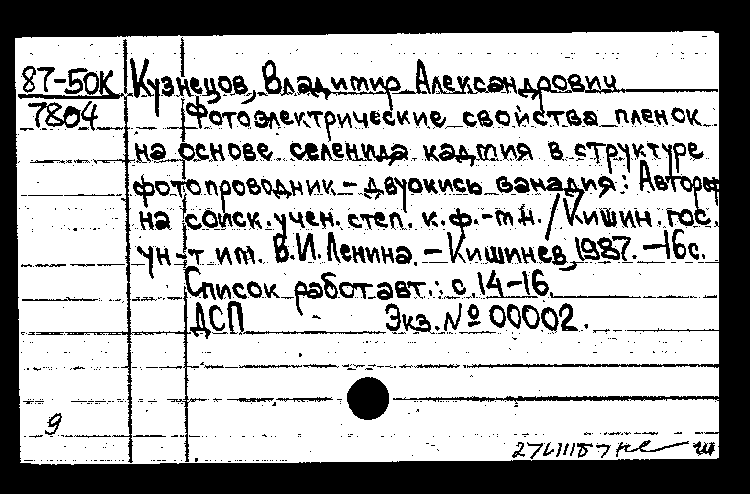 87-50К Кузнецов, Владимир Александрович
7804 Фотоэлектрические свойства пленок
на основе селенида кадмия в структуре
фотопроводник - двуокись ванадия: Автореф
на соиск. учен. степ. к.ф.-м.н. / Кишин. гос.
ун-т им. В.И.Ленина. - Кишинев, 1987. - 16с.
Список работ авт.: с.14-16.
ДСП Экз. № 00002.
9